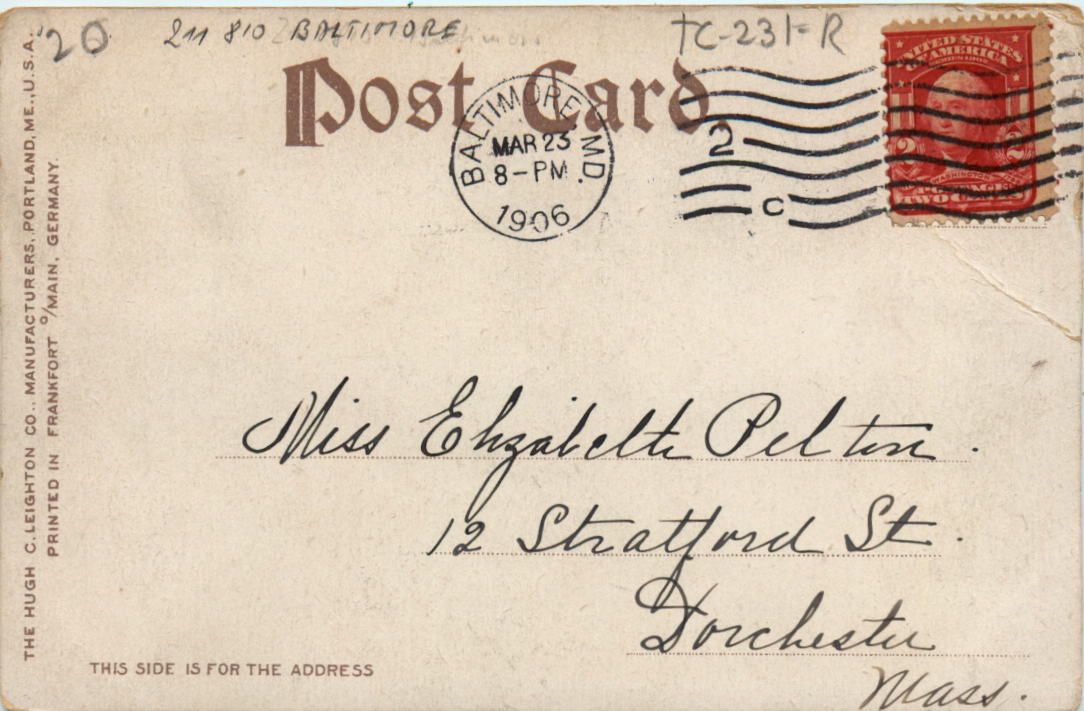 20
211 810 BALTIMORE
TC-231-R
Post Card.
BALTIMORE, MD.
MAR 23
8-PM
1906
2
C
UNITED STATES
OF AMERICA
WASHINGTON
2 2
TWO CENTS
Miss Elizabeth Pelton.
12 Stratford St.
Dorchester
Mass.
THIS SIDE IS FOR THE ADDRESS
THE HUGH C. LEIGHTON CO., MANUFACTURERS, PORTLAND, ME., U.S.A.
PRINTED IN FRANKFORT O/MAIN, GERMANY.